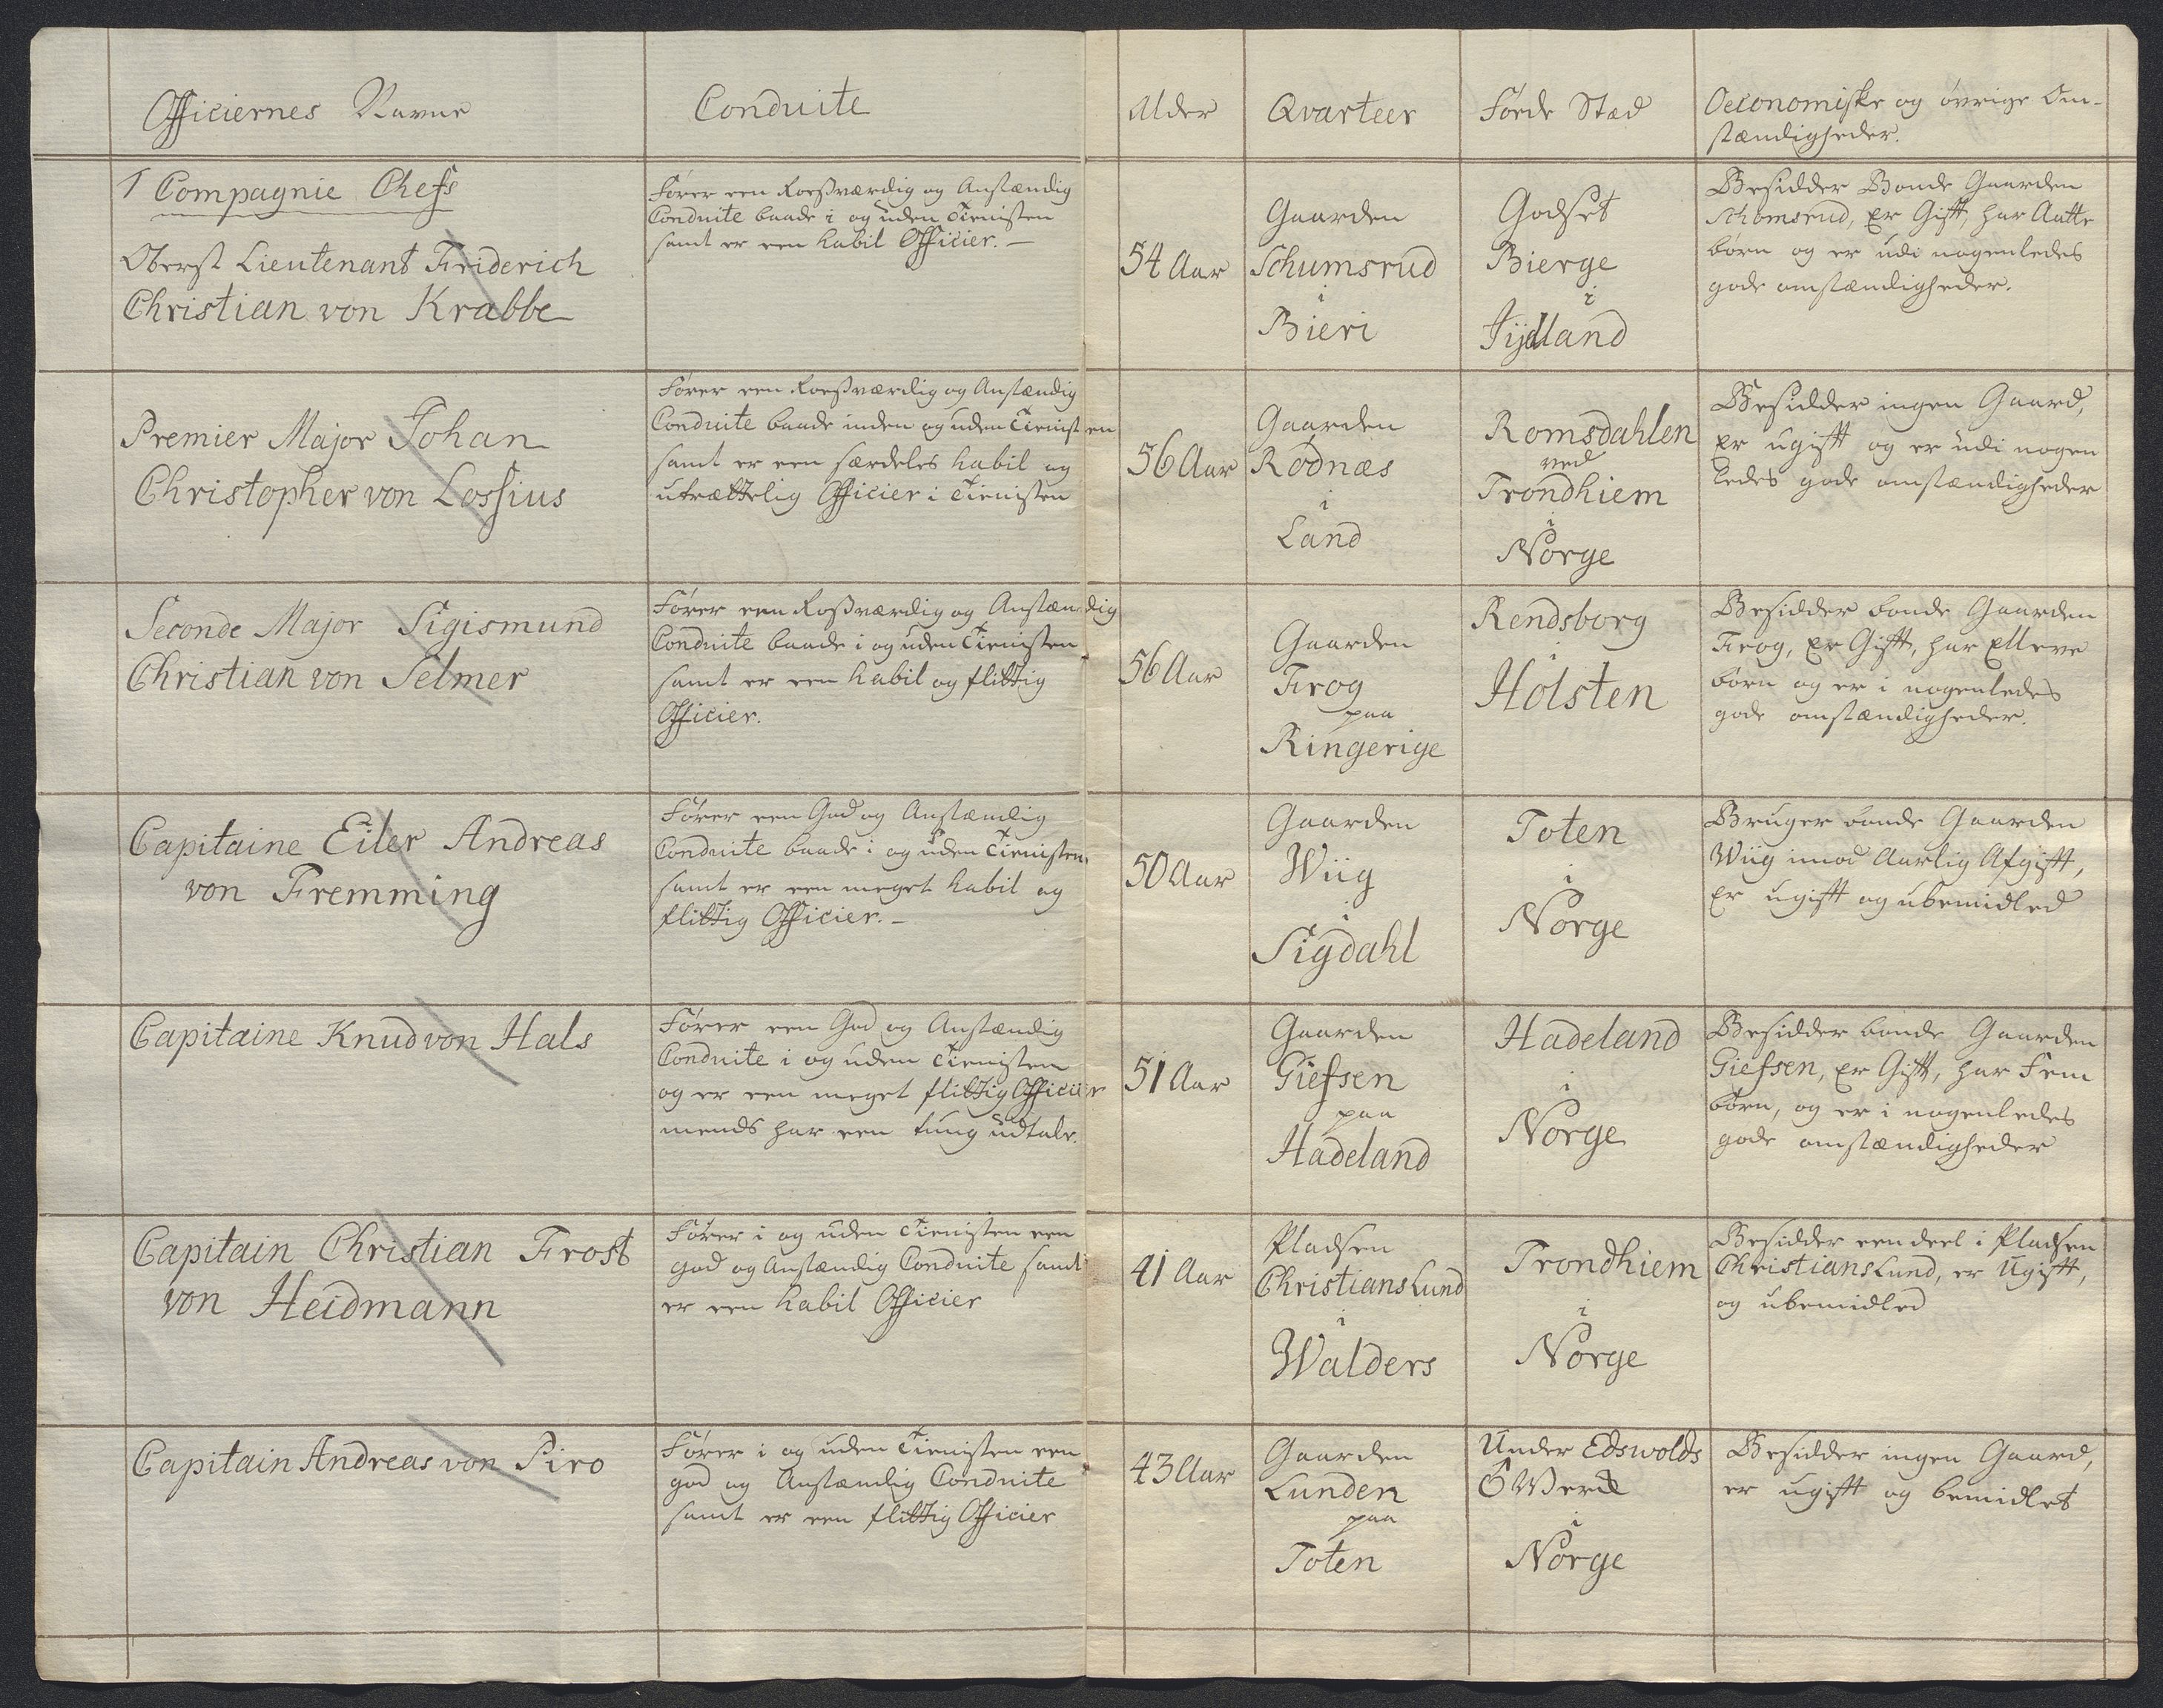 Officiernes Navne
Conduite
Alder
Qvarteer
Føede Stæd
Oeconomiske og øvrige Om-
stændigheder.
1 Compagnie Chefs
Oberst Lieutenant Friderich
Christian von Krabbe
Fører een Roesværdig og Anstændig
Conduite baade i og uden Tienisten
samt er een habil Officier. —
54 Aar
Gaarden
Schumsrud
i
Bieri
Godset
Bierge
i
Jydland
Besidder Bonde Gaarden
Schomsrud, Er Gift, har Aatte
børn og er udi nogenledes
gode omstændigheder.
Premier Major Johan
Christopher von Lossius
Fører een Roesværdig og Anstændig
Conduite baade inden og uden Tienisten
samt er een særdeles habil og
utrættelig Officier i Tienisten
56 Aar
Gaarden
Rødnæs
i
Land
Romsdahlen
ved
Trondhiem
i
Norge
Besidder ingen Gaard,
Er ugift og er udi nogen
ledes gode omstændigheder
Seconde Major Sigismund
Christian von Selmer
Fører een Rosværdig og Anstændig
Conduite baade i og uden Tienisten
samt er een habil og flittig
Officier.
56 Aar
Gaarden
Frog
paa
Ringerige
Rendsborg
i
Holsten
Besidder bonde Gaarden
Frog, Er Gift, har Elleve
børn og er i nogenledes
gode omstændigheder.
Capitaine Eiler Andreas
von Fremming
Fører een God og Anstændig
Conduite baade i og uden Tienisten
samt er een meget habil og
flittig Officier. —
50 Aar
Gaarden
Wiig
i
Sigdahl
Toten
i
Norge
Bruger bonde Gaarden
Wiig imod Aarlig Afgift,
Er ugift og ubemidled
Capitaine Knud von Hals
Fører een God og Anstændig
Conduite i og uden Tienisten
og er een meget flittig Officier
mends har een tung udtale.
51 Aar
Gaarden
Giefsen
paa
Hadeland
Hadeland
i
Norge
Besidder bonde Gaarden
Giefsen, Er Gift, har Fem
børn, og er i nogenledes
gode omstændigheder
Capitain Christian Frost
von Heidmann
Fører i og uden Tienisten een
god og Anstændig Conduite samt
er een habil Officier
41 Aar
Pladsen
ChristiansLund
i
Walders
Trondhiem
i
Norge
Besidder een deel i Pladsen
ChristiansLund, er Ugift,
og ubemidled
Capitain Andreas von Piro
Fører i og uden Tienisten een
god og Anstændig Conduite
samt er een flittig Officier
43 Aar
Gaarden
Lunden
paa
Toten
Under Edswolds
Værk
i
Norge
Besidder ingen Gaard,
er ugift og bemidlet